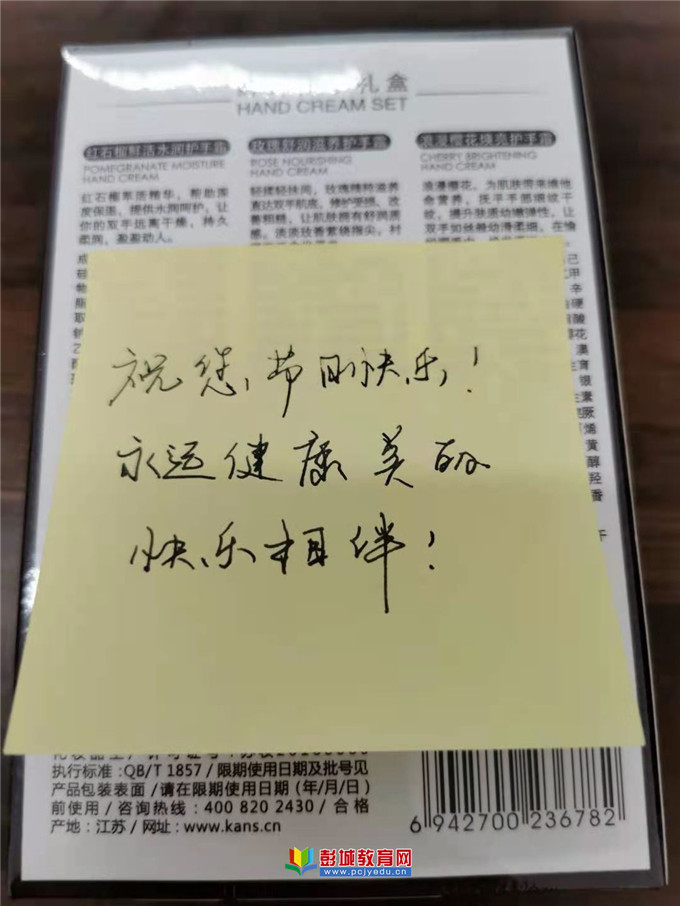 礼盒
HAND CREAM SET
红石榴鲜活水润护手霜
POMEGRANATE MOISTURE
HAND CREAM
红石榴萃活精华，帮助深
度保湿，提供水润呵护，让
你的双手远离干燥，持久
柔润，盈盈动人。
玫瑰舒润滋养护手霜
ROSE NOURISHING
HAND CREAM
轻揉轻抹间，玫瑰精粹滋养
直达双手肌底，修护受损、改
善粗糙，让肌肤拥有舒润质
感。淡淡玫香萦绕指尖，衬
浪漫樱花焕亮护手霜
CHERRY BRIGHTENING
HAND CREAM
浪漫樱花，为肌肤带来维他
命营养，抚平手部细纹干
纹，提升肤质幼嫩弹性，让
双手如丝般幼滑柔细，在愉
祝您节日快乐！
永远健康美丽
快乐相伴！
执行标准：QB/T 1857 / 限期使用日期及批号见
产品包装表面 / 请在限期使用日期 (年/月/日)
前使用 / 咨询热线：400 820 2430 / 合格
产地：江苏 / 网址：www.kans.cn
6 942700 236782
彭城教育网
www.pcjyedu.cn